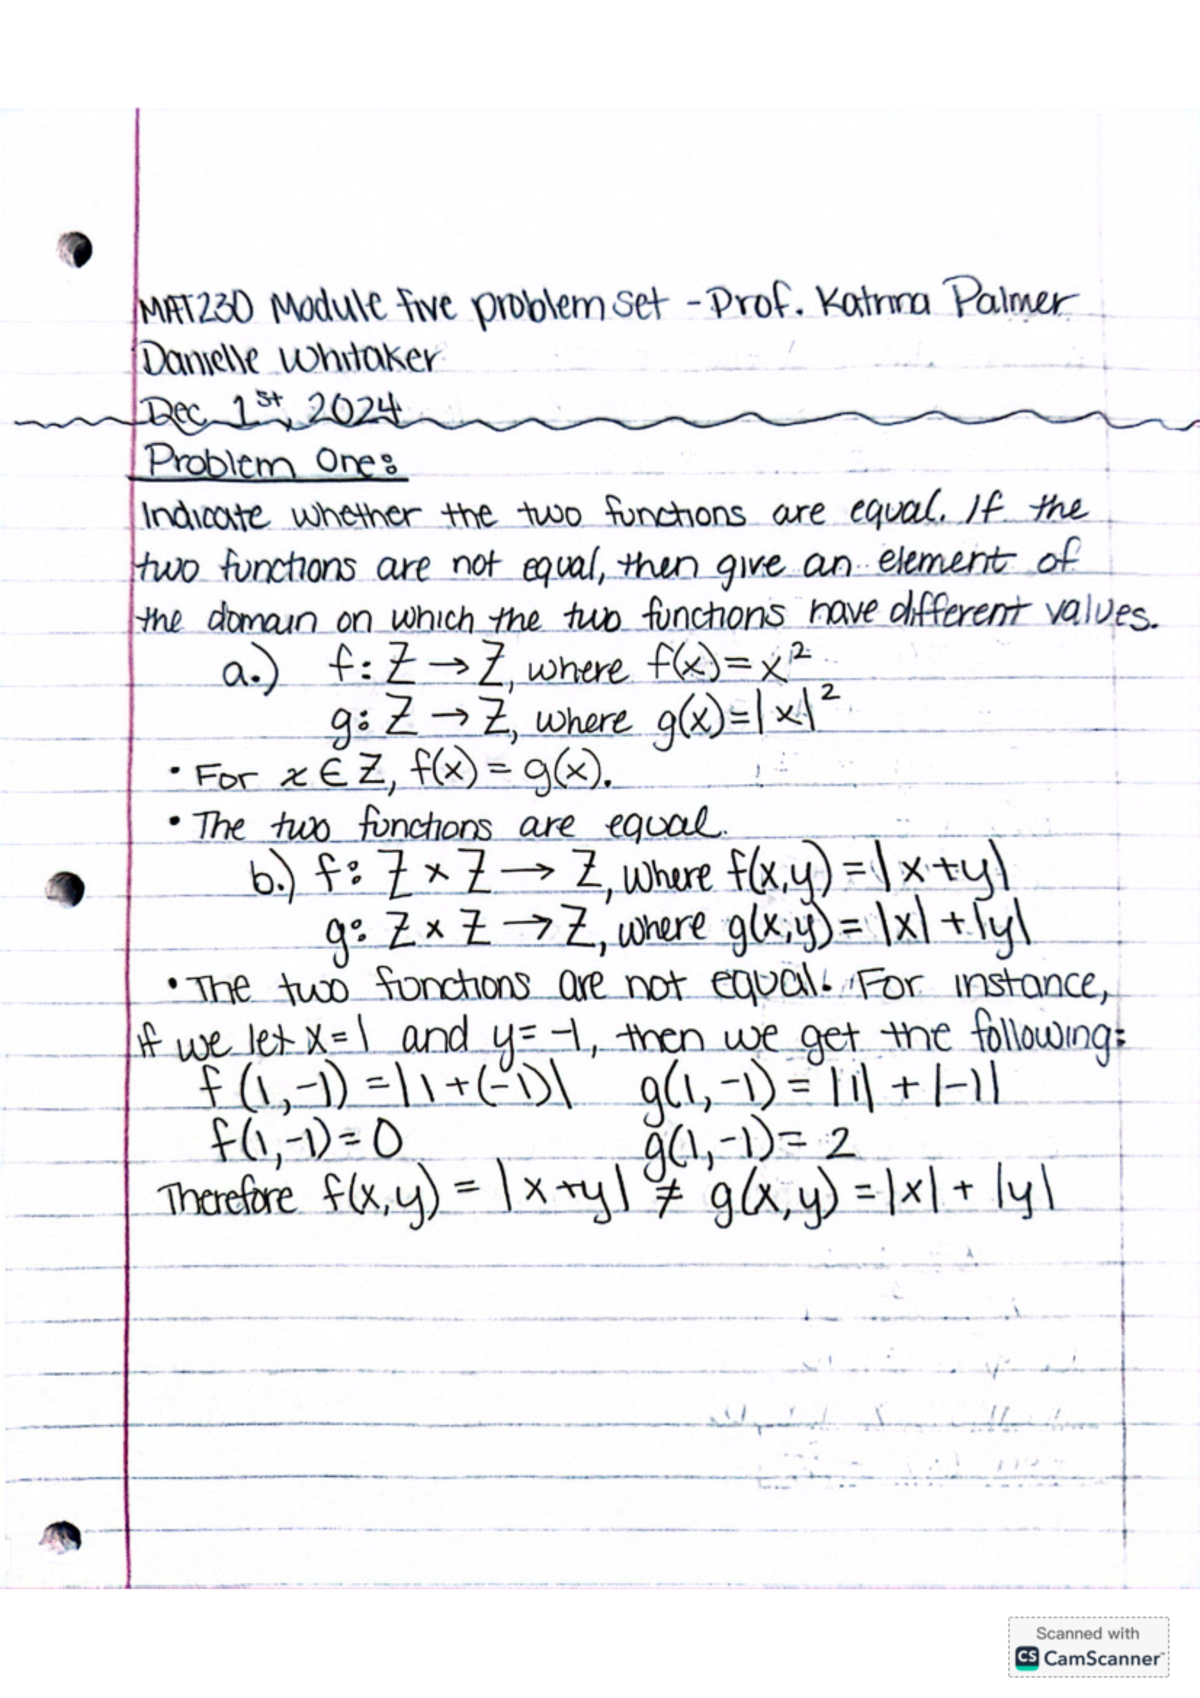 MAT230 Module five problem set - Prof. Katrina Palmer
Danielle Whitaker
Dec 1st, 2024
Problem One:
Indicate whether the two functions are equal. If the
two functions are not equal, then give an element of
the domain on which the two functions have different values.
a.) f: Z → Z, where f(x) = x²
g: Z → Z, where g(x) = |x|²
• For x ∈ Z, f(x) = g(x).
• The two functions are equal.
b.) f: Z × Z → Z, where f(x,y) = |x+y|
g: Z × Z → Z, where g(x,y) = |x| + |y|
• The two functions are not equal. For instance,
if we let x = 1 and y = -1, then we get the following:
f(1,-1) = |1+(-1)| g(1,-1) = |1| + |-1|
f(1,-1) = 0 g(1,-1) = 2
Therefore f(x,y) = |x+y| ≠ g(x,y) = |x| + |y|
Scanned with
CS CamScanner